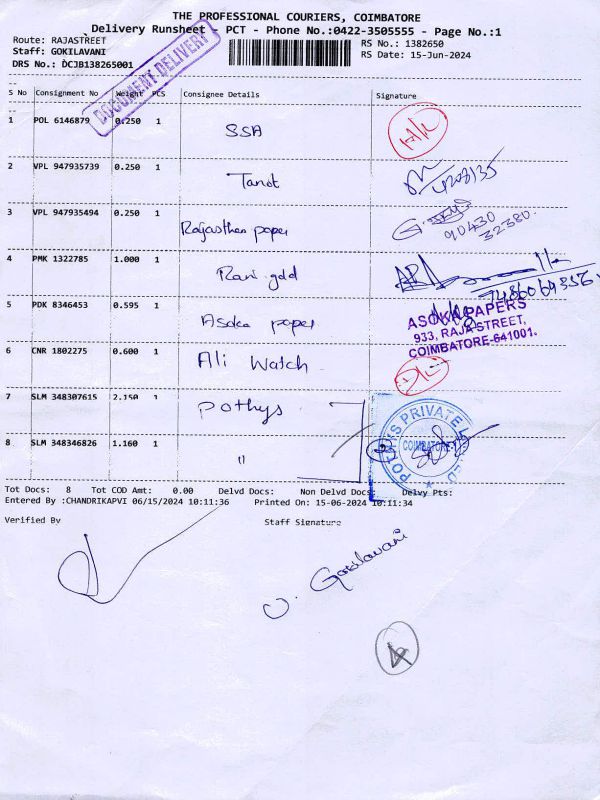 THE PROFESSIONAL COURIERS, COIMBATORE
Delivery Runsheet - PCT - Phone No.:0422-3505555 - Page No.:1
Route: RAJASTREET
RS No.: 1382650
Staff: GOKILAVANI
RS Date: 15-Jun-2024
DRS No.: DCJB138265001
DOCUMENT DELIVERY
S No Consignment No Weight PCS Consignee Details Signature
1 POL 6146879 0.250 1 SSA
2 VPL 947935739 0.250 1 Tanot
3 VPL 947935494 0.250 1 Rajasthan paper 90430 32380.
4 PMK 1322785 1.000 1 Rani gold
5 PDK 8346453 0.595 1 Asoka paper
ASOKA PAPERS
933, RAJA STREET,
COIMBATORE-641001.
6 CNR 1802275 0.600 1 Ali Watch D/L
7 SLM 348307615 2.150 1 Pothys
POTHYS PRIVATE LIMITED
COIMBATORE-1
8 SLM 348346826 1.160 1 "
Tot Docs: 8 Tot COD Amt: 0.00 Delvd Docs: Non Delvd Docs: Delvy Pts:
Entered By :CHANDRIKAPVI 06/15/2024 10:11:36 Printed On: 15-06-2024 10:11:34
Verified By Staff Signature
V. Gokilavani
4